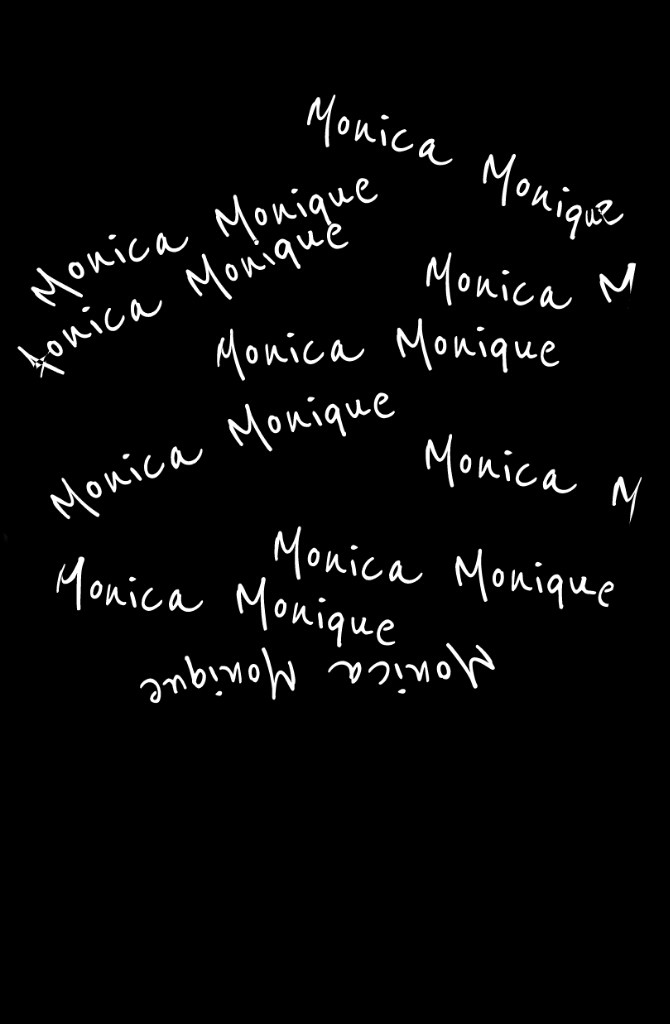 Monica Monique
Monica Monique
Monica Monique
Monica M
Monica Monique
Monica Monique
Monica M
Monica Monique
Monica Monique
Monica Monique